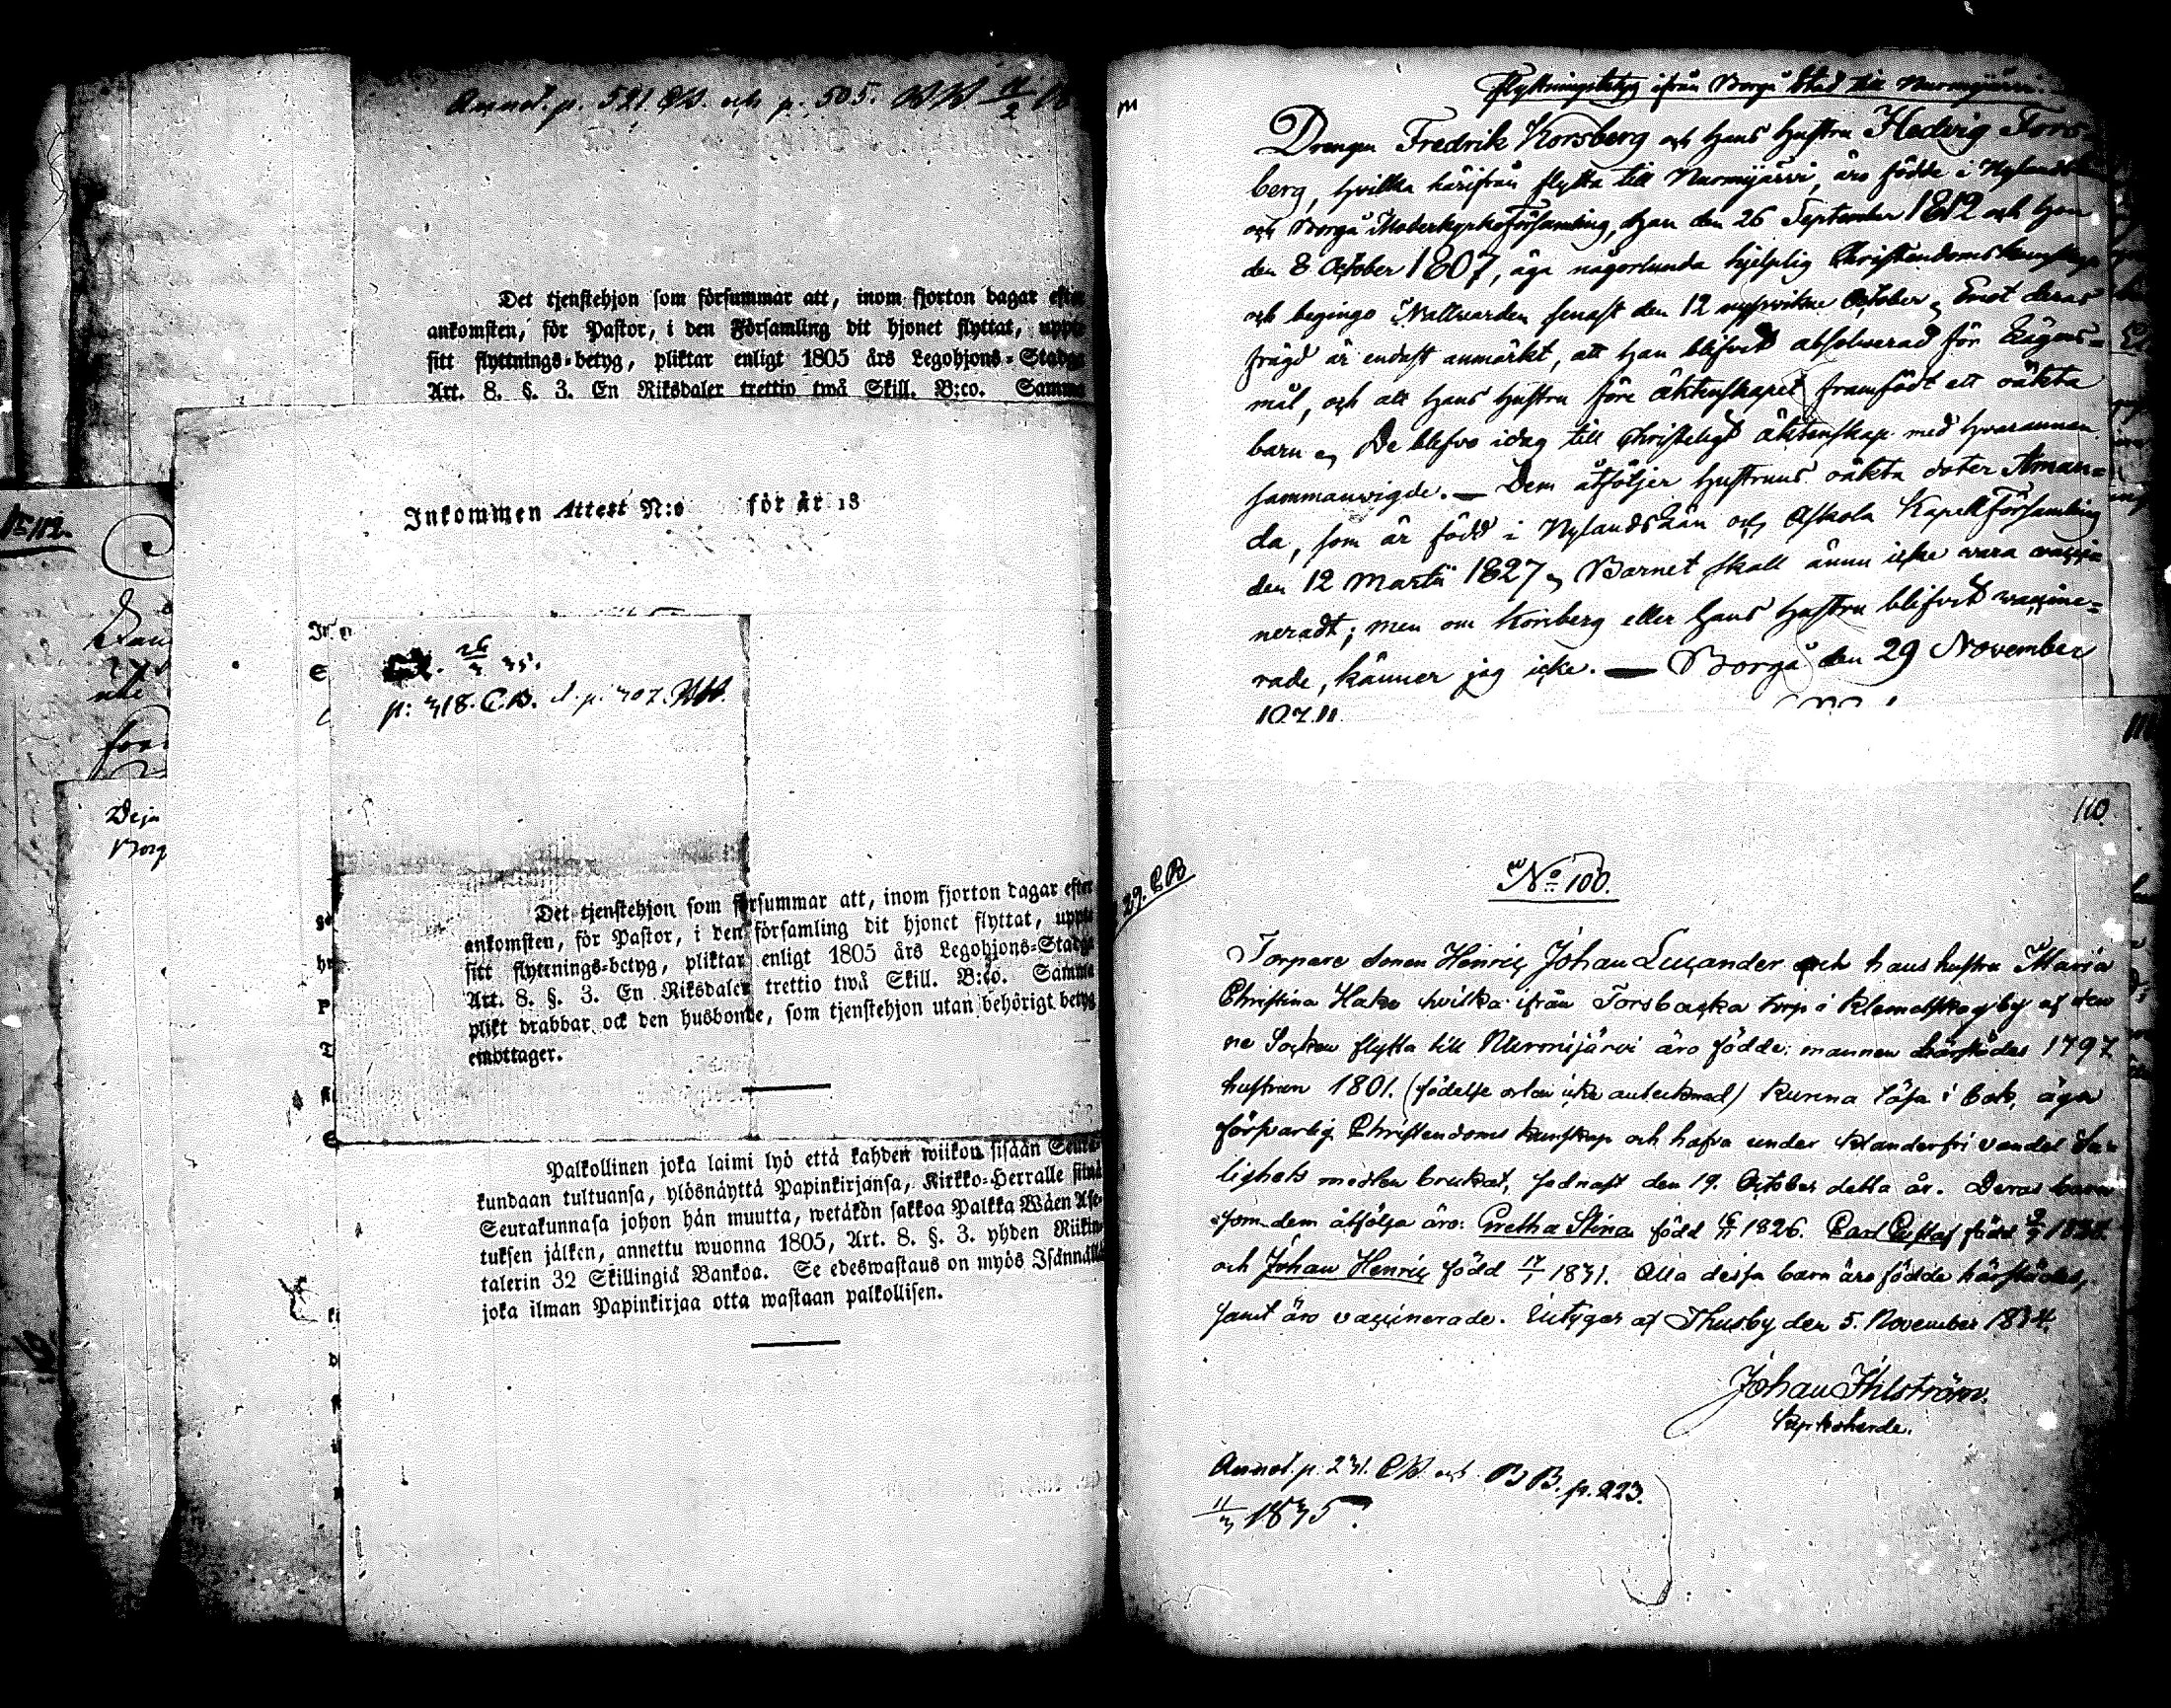 Annot. p. 521. CB. och p. 505.
Det tjenstehjon som försummar att, inom fjorton dagar efter
ankomsten, för Pastor, i den Församling dit hjonet flyttat, uppte
sitt flyttnings=betyg, pliktar enligt 1805 års Legohjons=Stadga
Art. 8. §. 3. En Riksdaler trettio twå Skill. B:co. Samma
Inkommen Attest N:o för år 18
p: 318. C.B. p. 307.
Det tjenstehjon som försummar att, inom fjorton dagar efter
ankomsten, för Pastor, i den församling dit hjonet flyttat, uppte
sitt flyttnings=betyg, pliktar enligt 1805 års Legohjons=Stadga
Art. 8. §. 3. En Riksdaler trettio twå Skill. B:co. Samma
plikt drabbar ock den husbonde, som tjenstehjon utan behörigt betyg
emottager.
Palkollinen joka laimi lyö että kahden wiikon sisään Seura-
kundaan tultuansa, ylösnäyttä Papinkirjansa, Kirkko=Herralle siinä
Seurakunnasa johon hän muutta, wetäkön sakkoa Palkka Wäen Ase=
tuksen jälken, annettu wuonna 1805, Art. 8. §. 3. yhden Riikin=
talerin 32 Skillingiä Bankoa. Se edeswastaus on myös Isännällä
joka ilman Papinkirjaa otta wastaan palkollisen.
Deja
Borg
Flyttningsbetyg ifrån Borgå Stad till Nurmijärvi.
Drengen Fredrik Korsberg och hans hustru Hedvig Fors=
berg, hvilka härifrån flytta till Nurmijärvi, äro födde i Nylands
och Borgå Moderkyrko Församling, han den 26 September 1812 och hon
den 8 October 1807, äga någorlunda hjelplig Christendoms kunskap
och begingo Nattvarden senast den 12 October. Emot deras
frägd är endast anmärkt, att han blifvit absolverad för Lägers=
mål, och att hans hustru före äktenskapet framfödt ett oäkta
barn. De blefvo idag till Christeligt äktenskap med hvarannan
sammanvigde. — Dem åtföljer hustruns oäkta doter Aman=
da, som är född i Nylands Län och Askola Kapell Församling
den 12 Martii 1827. Barnet skall ännu icke vara vacci
neradt; men om Korsberg eller hans hustru blifvit vaccine=
rade, känner jag icke. — Borgå den 29 November
110.
29. CB
No 100.
Torpare sonen Henric Johan Lucander och hans hustru Maria
Christina Hake hvilka ifrån Forsbacka torp i Klemetskog by af den
ne Socken flytta till Nurmijärvi äro födde: mannen härstädes 1797
hustrun 1801. (födelse orten icke antecknad) kunna läsa i bok, äga
försvarlig Christendoms kunskap och hafva under klanderfri vandel Sa=
lighets medlen brukat, sednast den 19. October detta år. Deras barn
som dem åtfölja äro: Gretha Stina född 1826. Carl Gustaf född
och Johan Henric född 17/1 1831. Alla dessa barn äro födde härstädes,
samt äro vaccinerade. Intygar af Thusby den 5. November 1834.
Johan Ihlström.
Kyrkoherde.
Annot. p. 231. CB. och BB. p. 223.
11/3 1835.